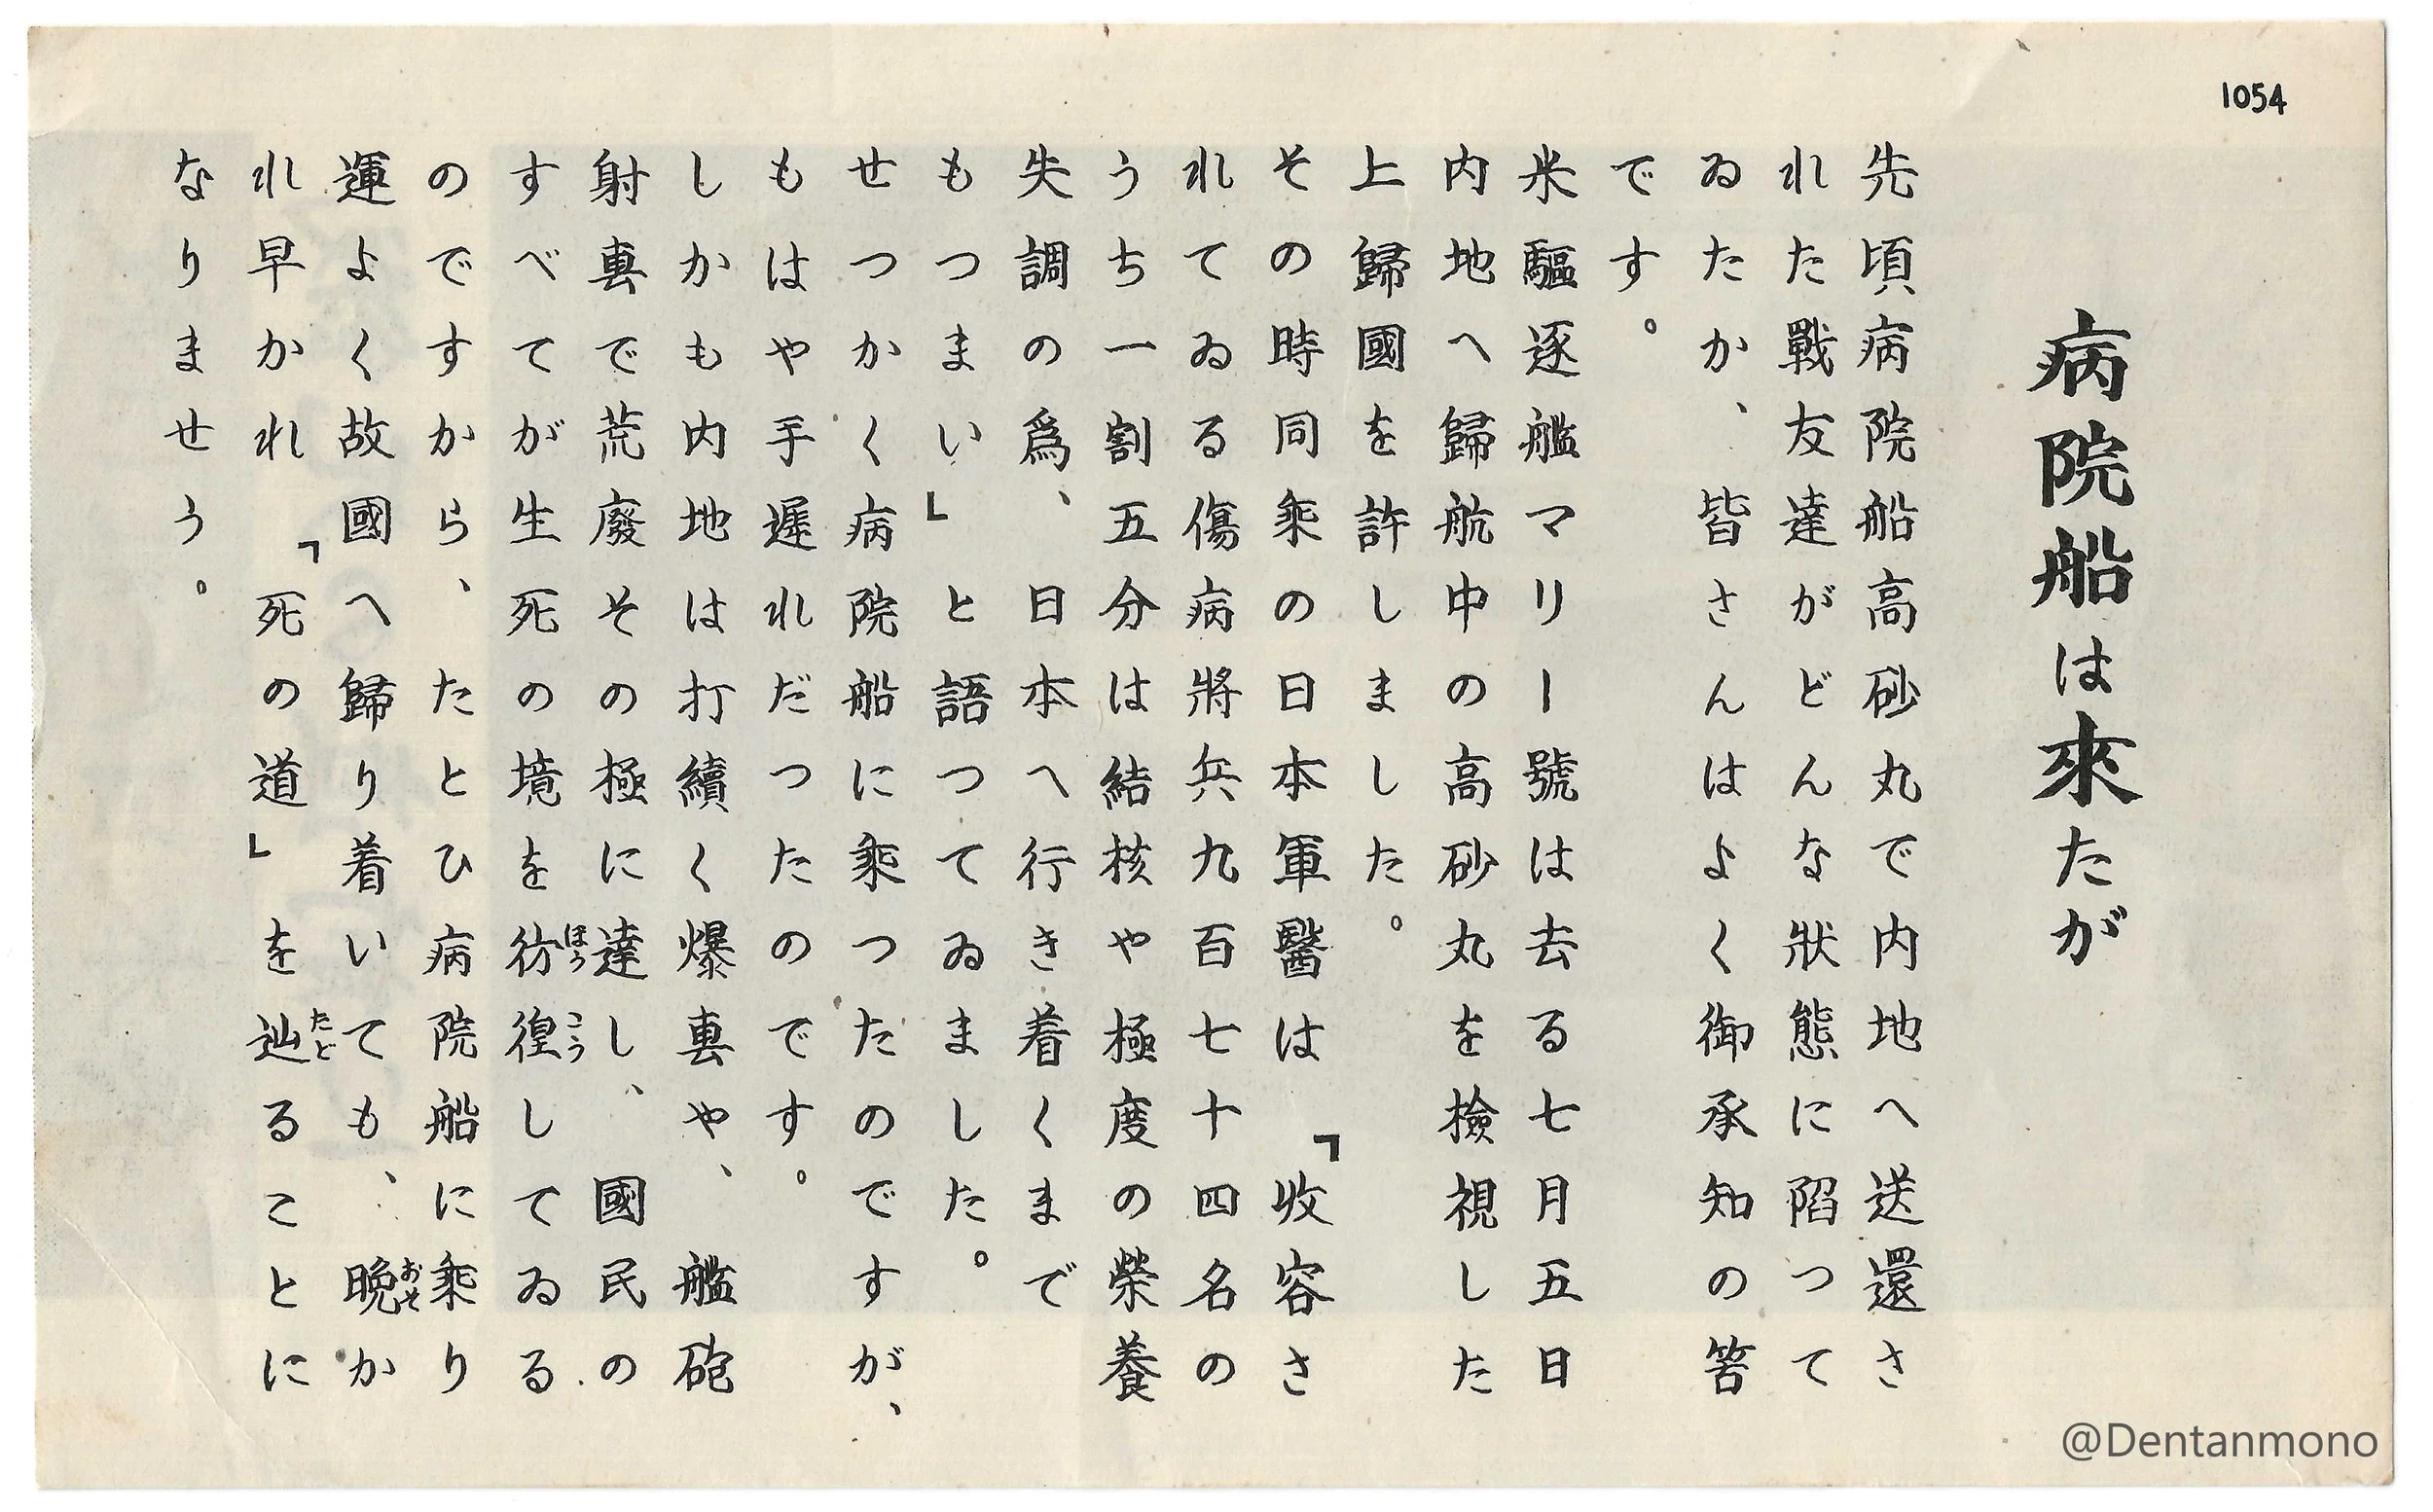 1054
病院船は來たが
先頃病院船高砂丸で内地へ送還さ
れた戰友達がどんな狀態に陷つて
ゐたか、皆さんはよく御承知の筈
です。
米驅逐艦マリー號は去る七月五日
内地へ歸航中の高砂丸を檢視した
上歸國を許しました。
その時同乘の日本軍醫は「收容さ
れてゐる傷病將兵九百七十四名の
うち一割五分は結核や極度の榮養
失調の爲、日本へ行き着くまで
もつまい」と語つてゐました。
せつかく病院船に乘つたのですが、
もはや手遲れだつたのです。
しかも内地は打續く爆擊や、艦砲
射擊で荒廢その極に達し、國民の
すべてが生死の境を彷徨してゐる
ほうこう
のですから、たとひ病院船に乘り
運よく故國へ歸り着いても、晩か
おそ
れ早かれ「死の道」を辿ることに
たど
なりませう。
@Dentanmono